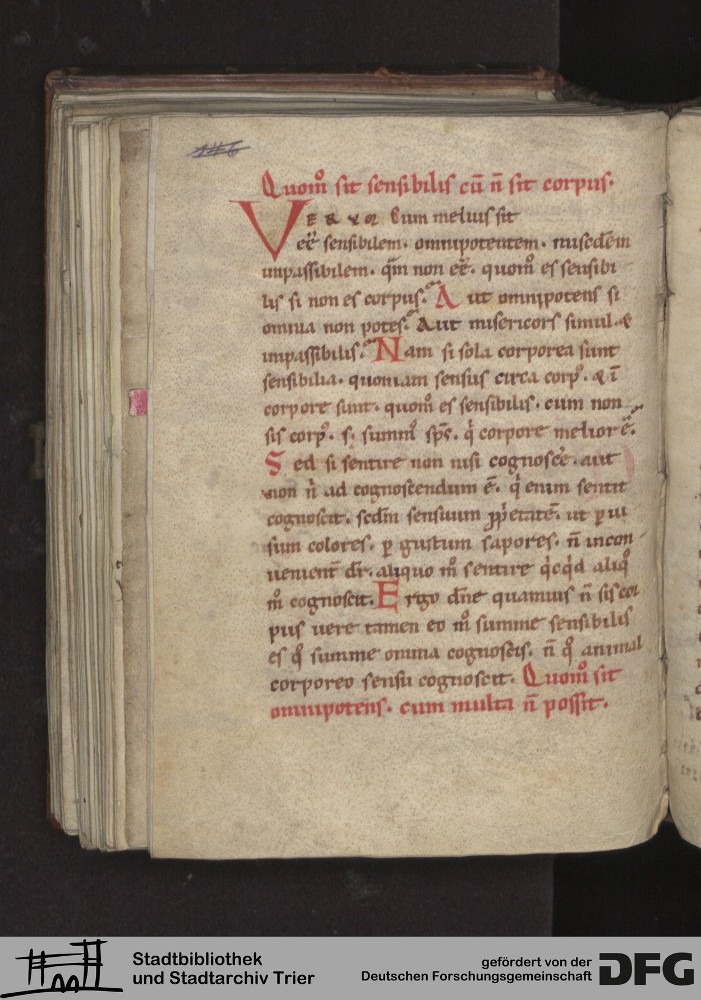 Quom̊ sit sensibilis cū n̄ sit corpus.
VERVM Cum melius sit
eē sensibilem. omnipotentem. misc̄dem
impassibilem. qm̄ non eē. quom̊ es sensibi
lis si non es corpus. Aut omnipotens si
omnia non potes. Aut misericors simul. &
impassibilis. Nam si sola corporea sunt
sensibilia. quoniam sensus circa corp᾽. & ī
corpore sunt. quom̊ es sensibilis. cum non
sis corp᾽. s; summ᾽ sp̄s. q̇ corpore melior ē.
Sed si sentire non nisi cognosc̄e. aut
non n̄ ad cognoscendum ē. q̇ enim sentit
cognoscit. scdm̄ sensuum ꝓp̄etatē. ut ꝑ ui
sum colores. ꝑ gustum sapores. n̄ incon
uenient̄ dr̄. aliquo m̊ sentire q̇cq̇d aliq̊
m̊ cognoscit. Ergo dn̄e quamuis n̄ sis cor
pus uere tamen eo m̊ summe sensibilis
es q̊ summe omnia cognoscis. n̄ q̊ animal
corporeo sensu cognoscit. Quom̊ sit
omnipotens. cum multa n̄ possit.
Stadtbibliothek
und Stadtarchiv Trier
gefördert von der
Deutschen Forschungsgemeinschaft
DFG